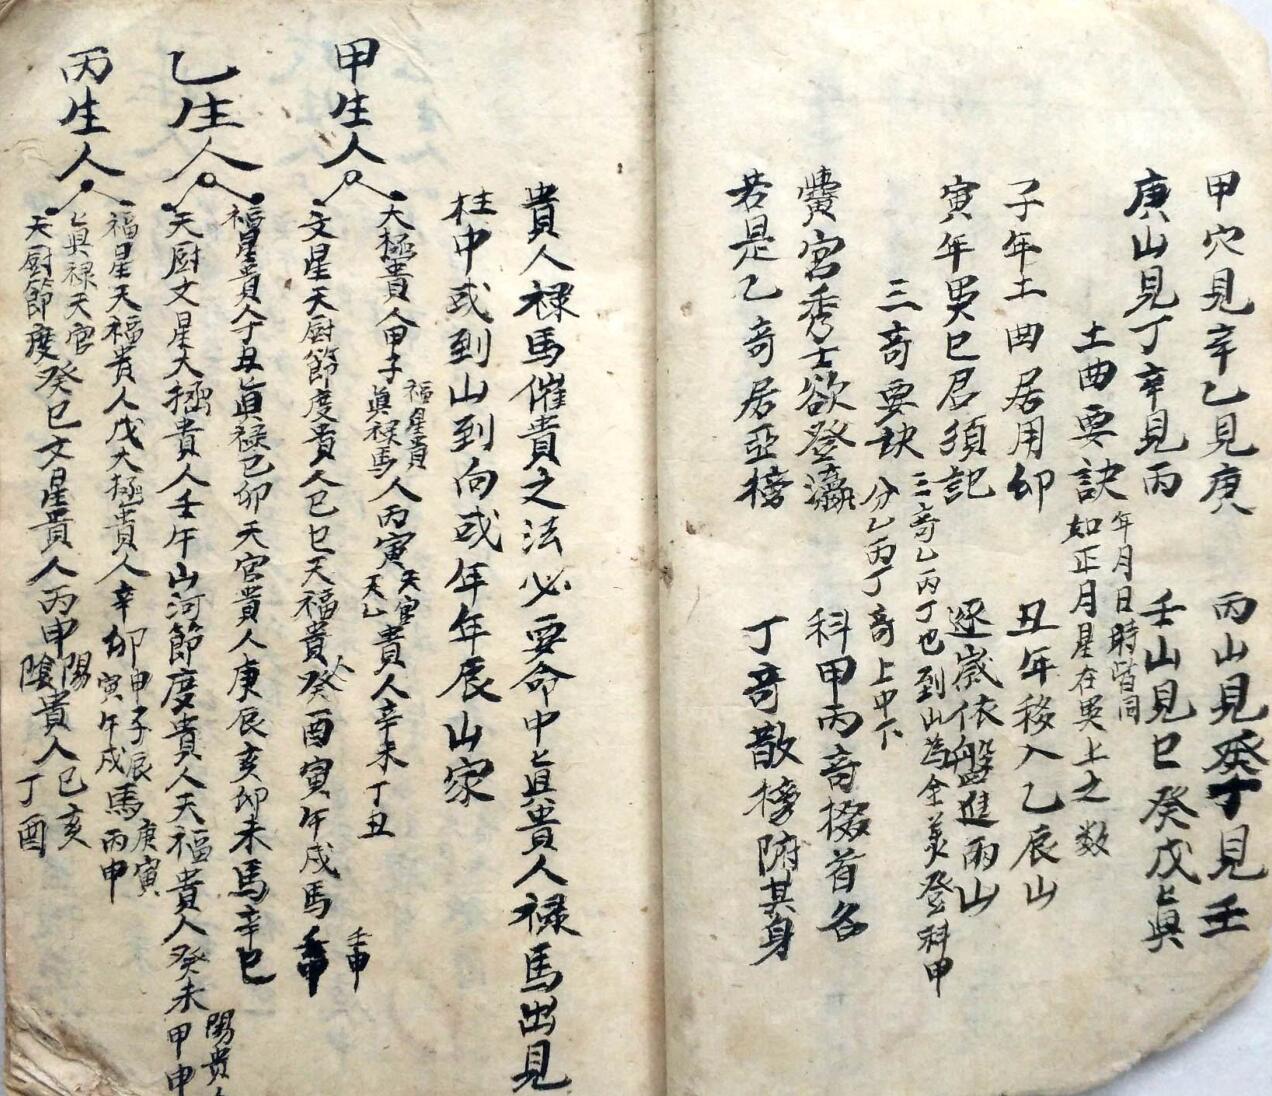 甲穴見辛乙見庚 丙山見癸丁見壬
庚山見丁辛見丙 壬山見巳癸戊真
土曲要訣 年月日時皆同 如正月星在巽上之数
子年土曲居用卯 丑年移入乙辰山
寅年巽巳君須記 逐歲依盤進兩山
三奇要訣 三奇乙丙丁也到山為全美登科甲 分乙丙丁奇上中下
黌宮秀士欲登瀛 科甲丙奇擢首名
若是乙奇居亞榜 丁奇散榜附其身
貴人禄馬催貴之法必要命中真貴人禄馬出見
柱中或到山到向或年年辰山家
甲生人
太極貴人甲子 福星貴 真禄馬 人丙寅 天官 天乙 貴人辛未丁丑
文星天厨節度貴人己巳天福貴人癸酉寅午戌馬壬申 壬申
乙生人
福星貴人丁丑真禄己卯天官貴人庚辰亥卯未馬辛巳
天厨文星太極貴人壬午山河節度貴人天福貴人癸未甲申 陽貴人
丙生人
福星天福貴人戊 太極貴人辛卯 申子辰 寅午戌 馬 庚寅 丙申
真禄天官
天厨節度癸巳文星貴人丙申 陽 陰 貴人 己亥 丁酉